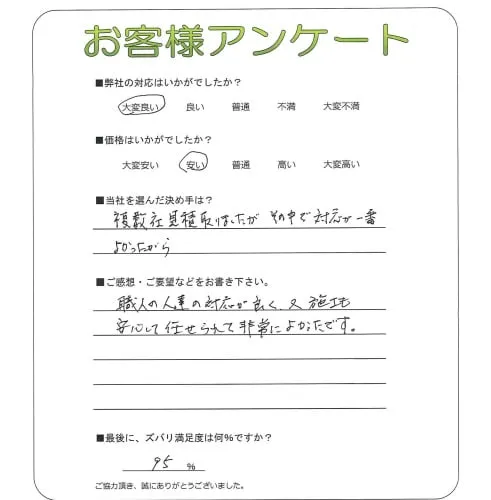 お客様アンケート
■弊社の対応はいかがでしたか？
大変良い 良い 普通 不満 大変不満
■価格はいかがでしたか？
大変安い 安い 普通 高い 大変高い
■当社を選んだ決め手は？
複数社見積取りましたが その中で対応が一番
よかったから
■ご感想・ご要望などをお書き下さい。
職人の人達の対応が良く、又 施工も
安心して任せられて非常によかったです。
■最後に、ズバリ満足度は何％ですか？
95 ％
ご協力頂き、誠にありがとうございました。